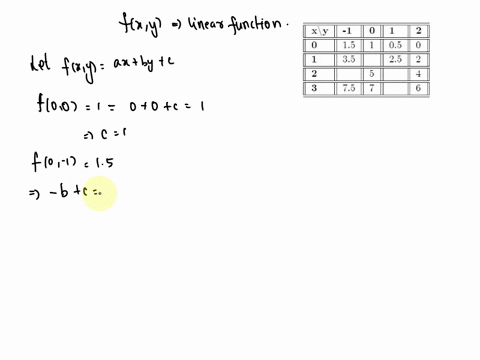 f(x,y) ⇒ linear function.
Let f(x,y) = ax+by+c
f(0,0) = 1 = 0+0+c = 1
⇒ c=1
f(0,-1) = 1.5
⇒ -b+c=
x\y -1 0 1 2
0 1.5 1 0.5 0
1 3.5 2.5 2
2 5 4
3 7.5 7 6